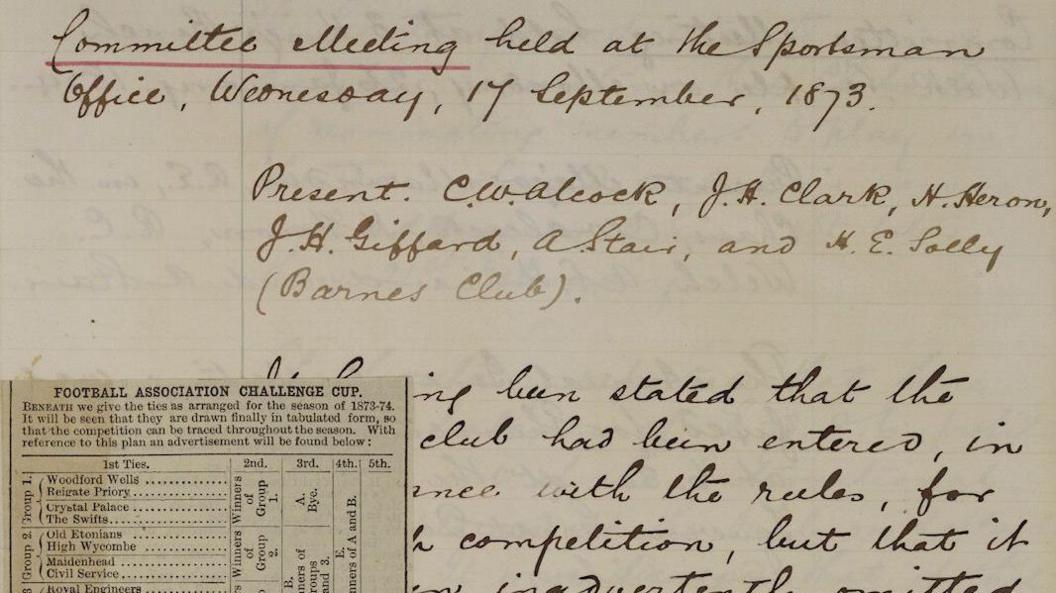 Committee Meeting held at the Sportsman
Office, Wednesday, 17 September, 1873.
Present. C.W. Alcock, J.H. Clark, H. Heron,
J.H. Giffard, A Stair, and H. E. Solly
(Barnes Club).
been stated that the
club had been entered, in
with the rules, for
competition, but that it
inadvertently omitted
FOOTBALL ASSOCIATION CHALLENGE CUP.
BENEATH we give the ties as arranged for the season of 1873-74.
It will be seen that they are drawn finally in tabulated form, so
that the competition can be traced throughout the season. With
reference to this plan an advertisement will be found below:
1st Ties. 2nd. 3rd. 4th. 5th.
Group 1.
Woodford Wells
Reigate Priory
Crystal Palace
The Swifts
Winners of Group 1.
A. Bye.
Group 2
Old Etonians
High Wycombe
Maidenhead
Civil Service
Winners of Group 2.
B.
and 3.
E.
of A and B.
Royal Engineers